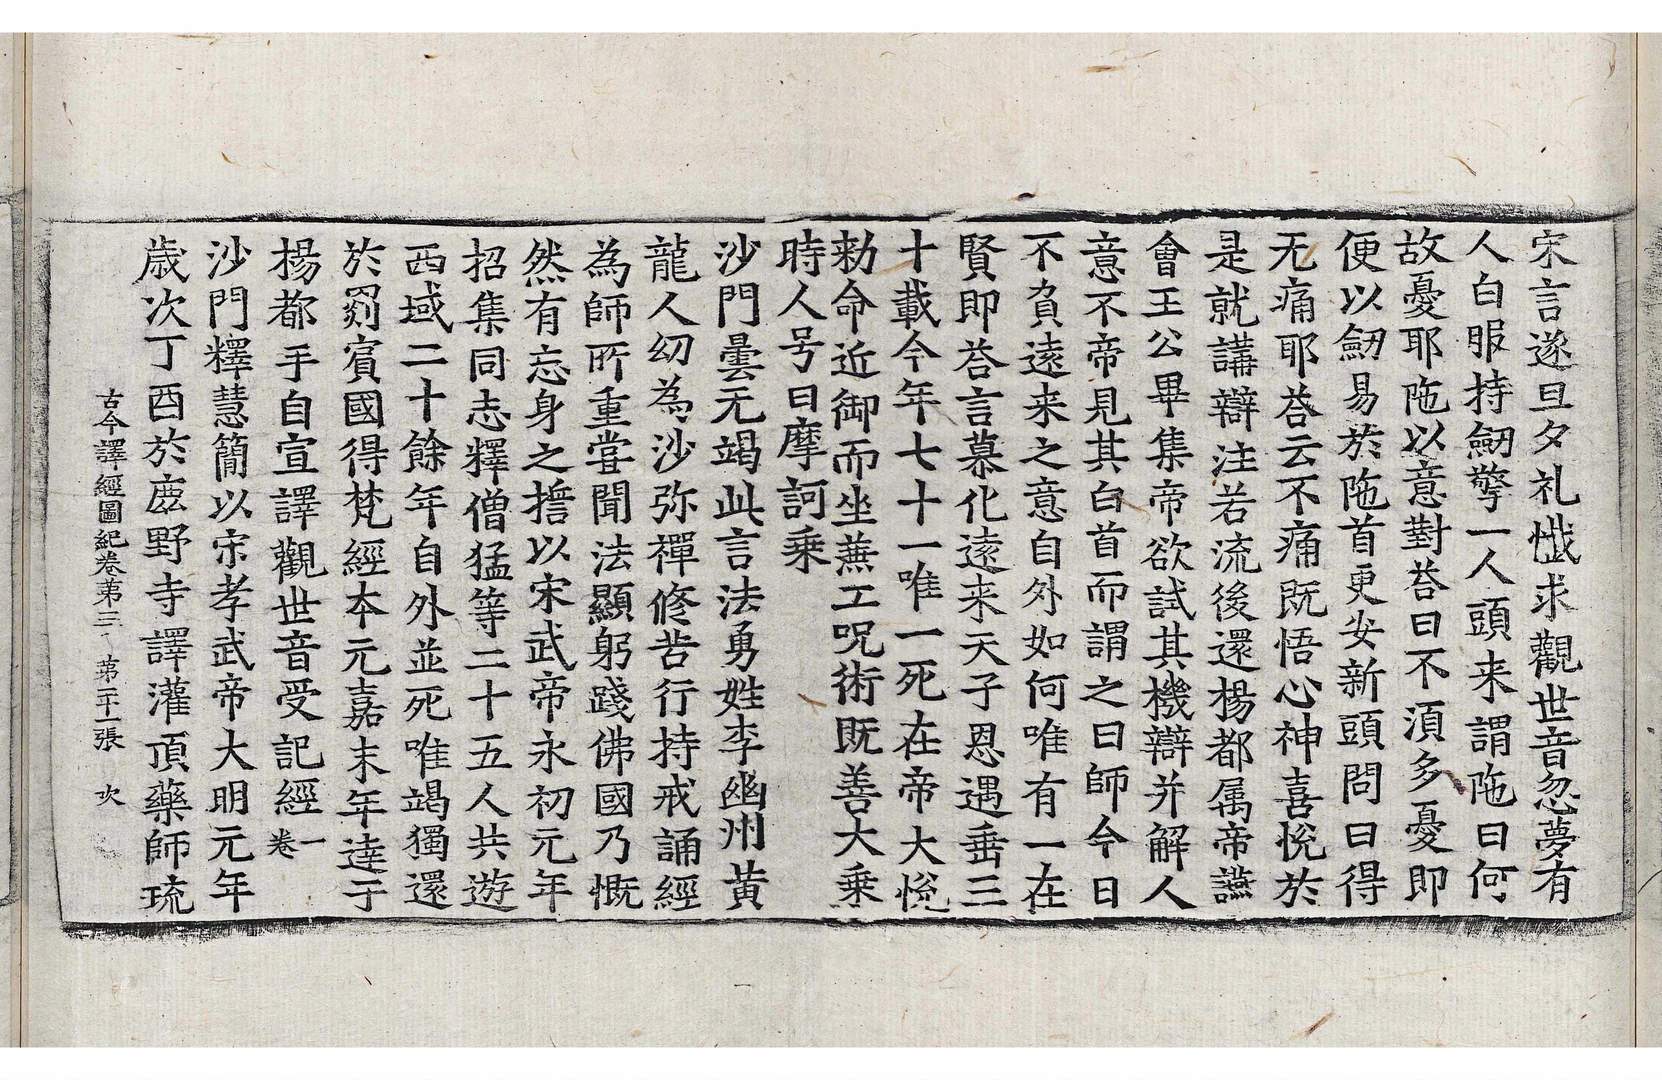 宋言遂旦夕礼懺求觀世音忽夢有
人白服持劒擎一人頭来謂陁曰何
故憂耶陁以意對荅曰不湏多憂即
便以劒易於陁首更安新頭問曰得
无痛耶荅云不痛既悟心神喜悅於
是就講辯注若流後還楊都属帝讌
會王公畢集帝欲試其機辯并解人
意不帝見其白首而謂之曰師今日
不負遠来之意自外如何唯有一在
賢即荅言慕化遠来天子恩遇垂三
十載今年七十一唯一死在帝大悅
勑命近御而坐蕪工呪術既善大乗
時人号曰摩訶乗
沙門曇无竭此言法勇姓李幽州黄
龍人幼為沙弥禪修苦行持戒誦經
為師所重嘗聞法顯躬踐佛國乃慨
然有忘身之擔以宋武帝永初元年
招集同志釋僧猛等二十五人共遊
西域二十餘年自外並死唯竭獨還
於罽賓國得梵經夲元嘉末年達于
楊都手自宣譯觀世音受記經一卷
沙門釋慧簡以宋孝武帝大明元年
歳次丁酉於鹿野寺譯灌頂藥師琉
古今譯經圖紀卷苐三 苐二十一張 次